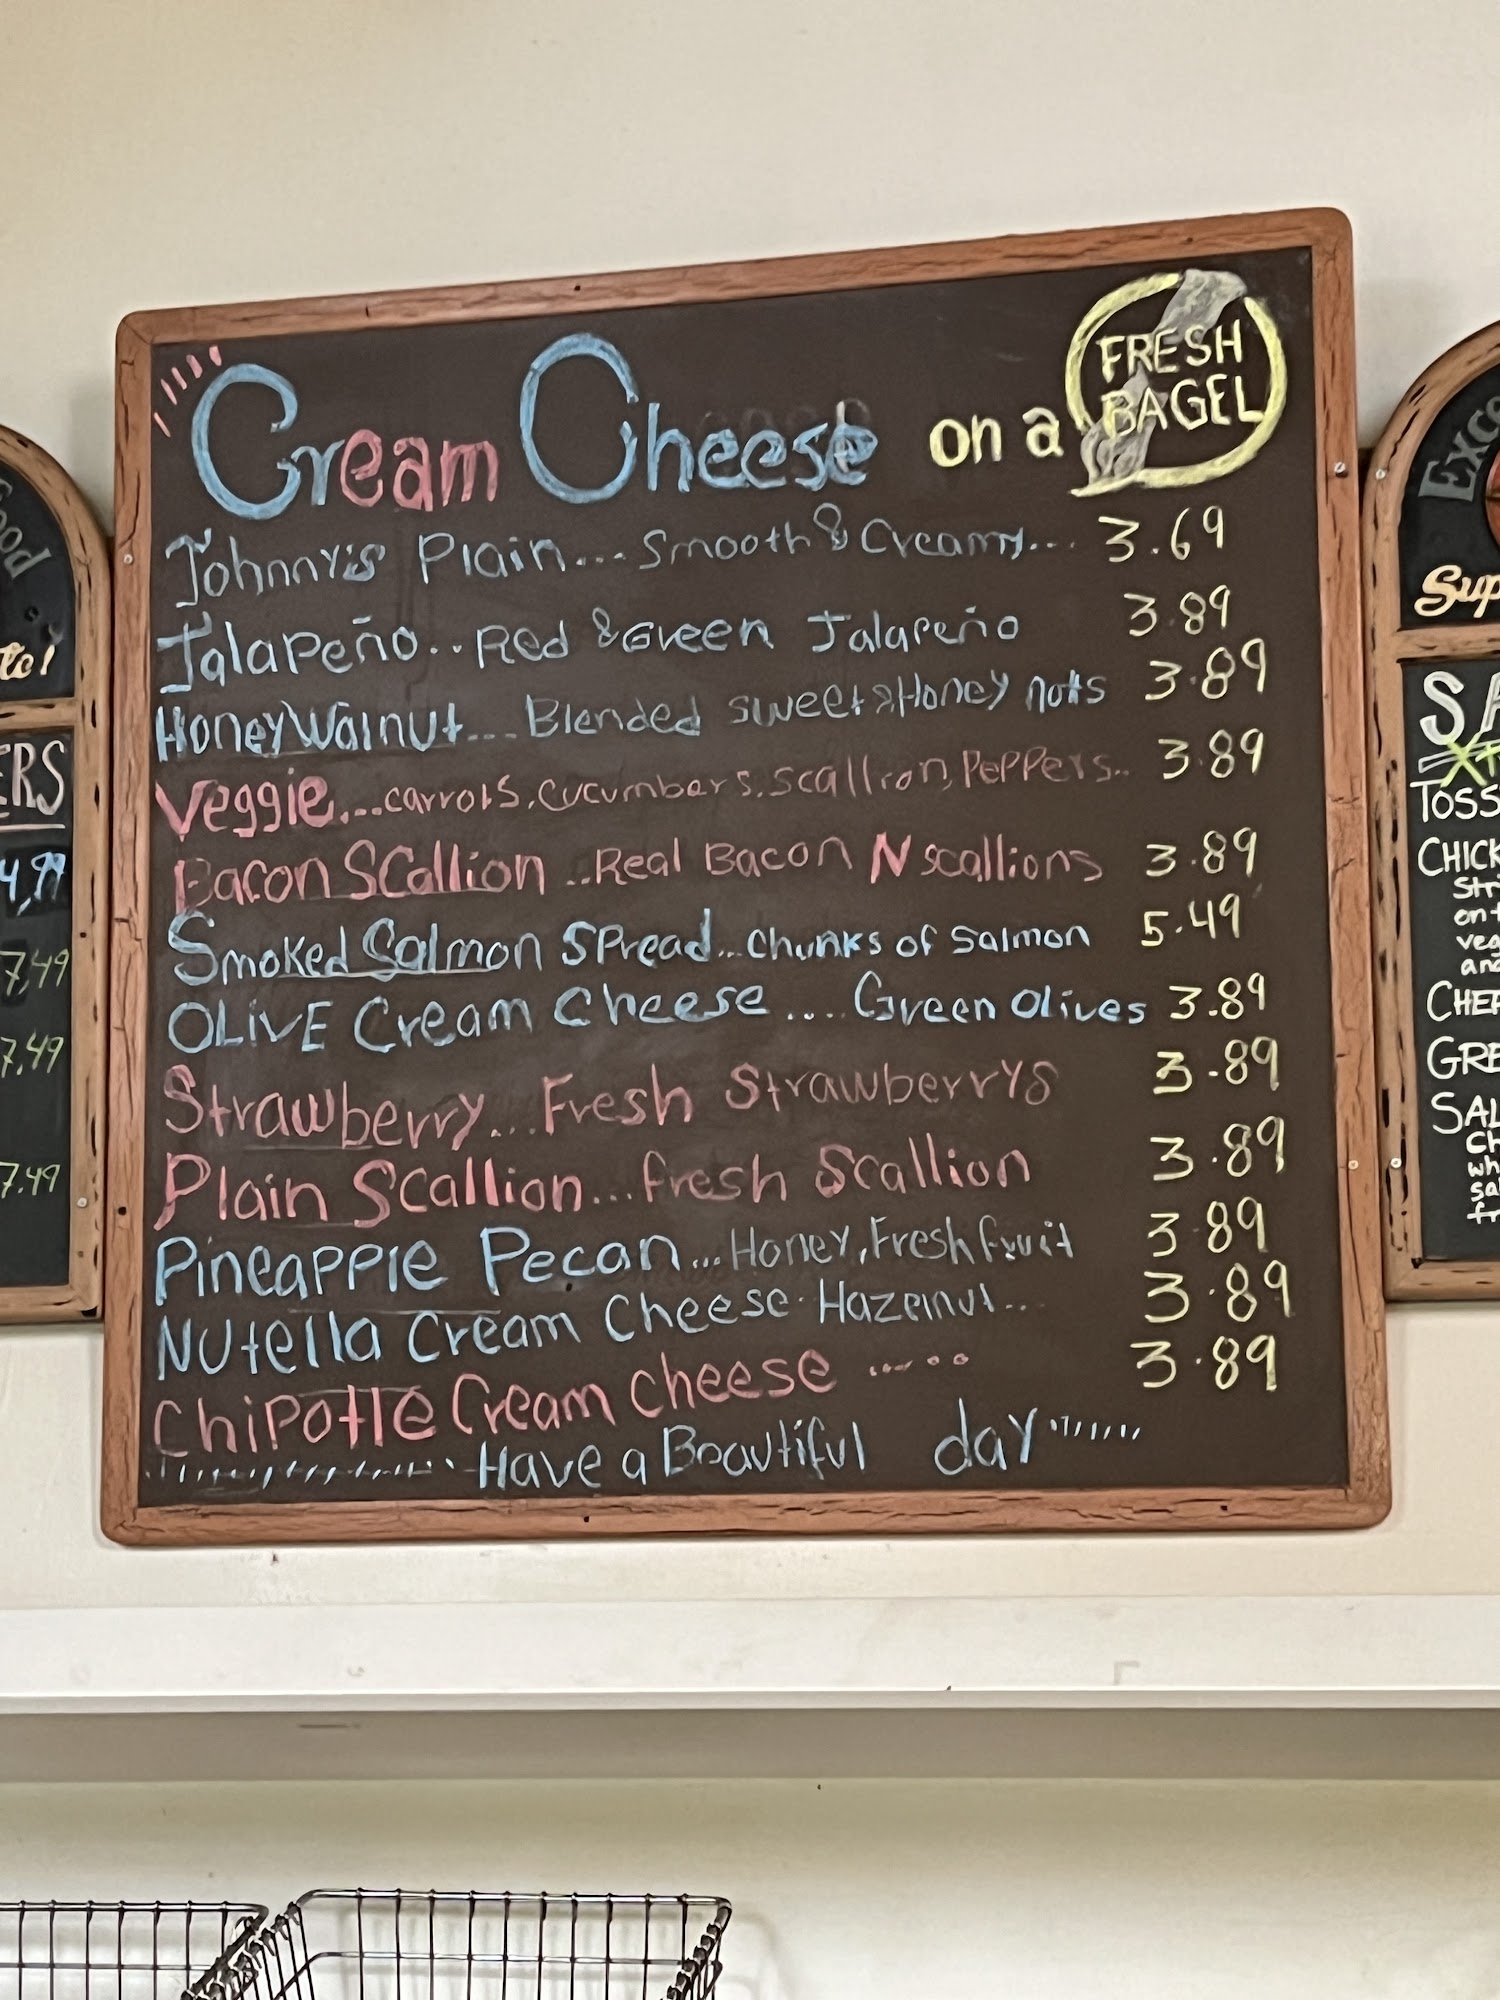 Cream Cheese on a FRESH BAGEL
Johnny's Plain... Smooth & Creamy... 3.69
Jalapeño.. Red & Green Jalapeño 3.89
Honey Walnut.... Blended sweet & Honey nuts 3.89
Veggie....carrots, cucumbars, scallion, Peppers.. 3.89
Bacon Scallion ..Real Bacon N scallions 3.89
Smoked Salmon Spread...chunks of salmon 5.49
OLIVE Cream Cheese .... Green Olives 3.89
Strawberry...Fresh Strawberrys 3.89
Plain Scallion...fresh Scallion 3.89
Pineapple Pecan...Honey, Fresh fruit 3.89
Nutella Cream Cheese. Hazelnut... 3.89
Chipotle Cream Cheese ...... 3.89
Have a Beautiful day
ERS
4.99
7.49
7.49
7.49
Sup
SA
TOSS
CHICK
Stri
on t
veg
and
CHEF
GRE
SAL
Ch
wh
sa
fr